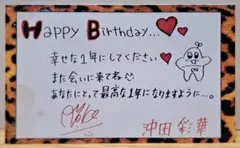 Happy Birthday...
幸せな1年にしてください
また会いに来てね
あなたにとって最高な1年になりますように...。
沖田 彩華